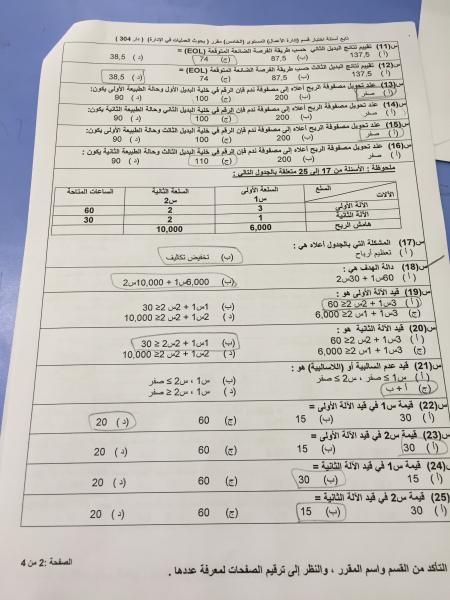 تابع أسئلة اختبار قسم (إدارة الأعمال) المستوى (الخامس) مقرر ( بحوث العمليات في الإدارة) ( دار 304 )
س(11) تقييم نتائج البديل الثاني حسب طريقة الفرصة الضائعة المتوقعة (EOL) =
( أ ) 137,5 (ب) 87,5 (ج) 74 ( د ) 38,5
س(12) تقييم نتائج البديل الثالث حسب طريقة الفرصة الضائعة المتوقعة (EOL) =
( أ ) 137,5 (ب) 87,5 (ج) 74 ( د ) 38,5
س(13) عند تحويل مصفوفة الربح أعلاه إلى مصفوفة ندم فإن الرقم في خلية البديل الأول وحالة الطبيعة الأولى يكون:
( أ ) صفر (ب) 200 (ج) 100 ( د ) 90
س(14) عند تحويل مصفوفة الربح أعلاه إلى مصفوفة ندم فإن الرقم في خلية البديل الثاني وحالة الطبيعة الأولى يكون:
( أ ) صفر (ب) 200 (ج) 100 ( د ) 90
س(15) عند تحويل مصفوفة الربح أعلاه إلى مصفوفة ندم فإن الرقم في خلية البديل الثالث وحالة الطبيعة الأولى يكون:
( أ ) صفر (ب) 200 (ج) 100 ( د ) 90
س(16) عند تحويل مصفوفة الربح أعلاه إلى مصفوفة ندم فإن الرقم في خلية البديل الثالث وحالة الطبيعة الثانية يكون :
( أ ) صفر (ب) 200 (ج) 110 ( د ) 90
ملحوظة : الأسئلة من 17 إلى 25 متعلقة بالجدول التالي :
السلع السلعة الأولى السلعة الثانية الساعات المتاحة
الآلات س1 س2
الآلة الأولى 3 2 60
الآلة الثانية 1 2 30
هامش الربح 6,000 10,000
س(17) المشكلة التي بالجدول أعلاه هي :
( أ ) تعظيم أرباح (ب) تخفيض تكاليف
س(18) دالة الهدف هي :
( أ ) 60س1 + 30س2 (ب) 6,000س1 + 10,000س2
س(19) قيد الآلة الأولى هو :
( أ ) 3س1 + 2س2 ≥ 60 (ب) 1س1 + 2س2 ≥ 30
(ج) 3س1 + 1س2 ≥ 6,000 ( د ) 2س1 + 2س2 ≥ 10,000
س(20) قيد الآلة الثانية هو :
( أ ) 3س1 + 2س2 ≥ 60 (ب) 1س1 + 2س2 ≥ 30
(ج) 3س1 + 1س2 ≥ 6,000 ( د ) 2س1 + 2س2 ≥ 10,000
س(21) قيد عدم السالبية أو (اللاسالبية) هو :
( أ ) س1 ≥ صفر ، س2 ≥ صفر (ب) س1 ، س2 ≥ صفر
(ج) أ + ب ( د ) س1 ، س2 ≤ صفر
س(22) قيمة س1 في قيد الآلة الأولى =
( أ ) 30 (ب) 15 (ج) 60 ( د ) 20
س(23) قيمة س2 في قيد الآلة الأولى =
( أ ) 30 (ب) 15 (ج) 60 ( د ) 20
س(24) قيمة س1 في قيد الآلة الثانية =
( أ ) 15 (ب) 30 (ج) 60 ( د ) 20
س(25) قيمة س2 في قيد الآلة الثانية =
( أ ) 30 (ب) 15 (ج) 60 ( د ) 20
التأكد من القسم واسم المقرر ، والنظر إلى ترقيم الصفحات لمعرفة عددها . الصفحة :2 من 4